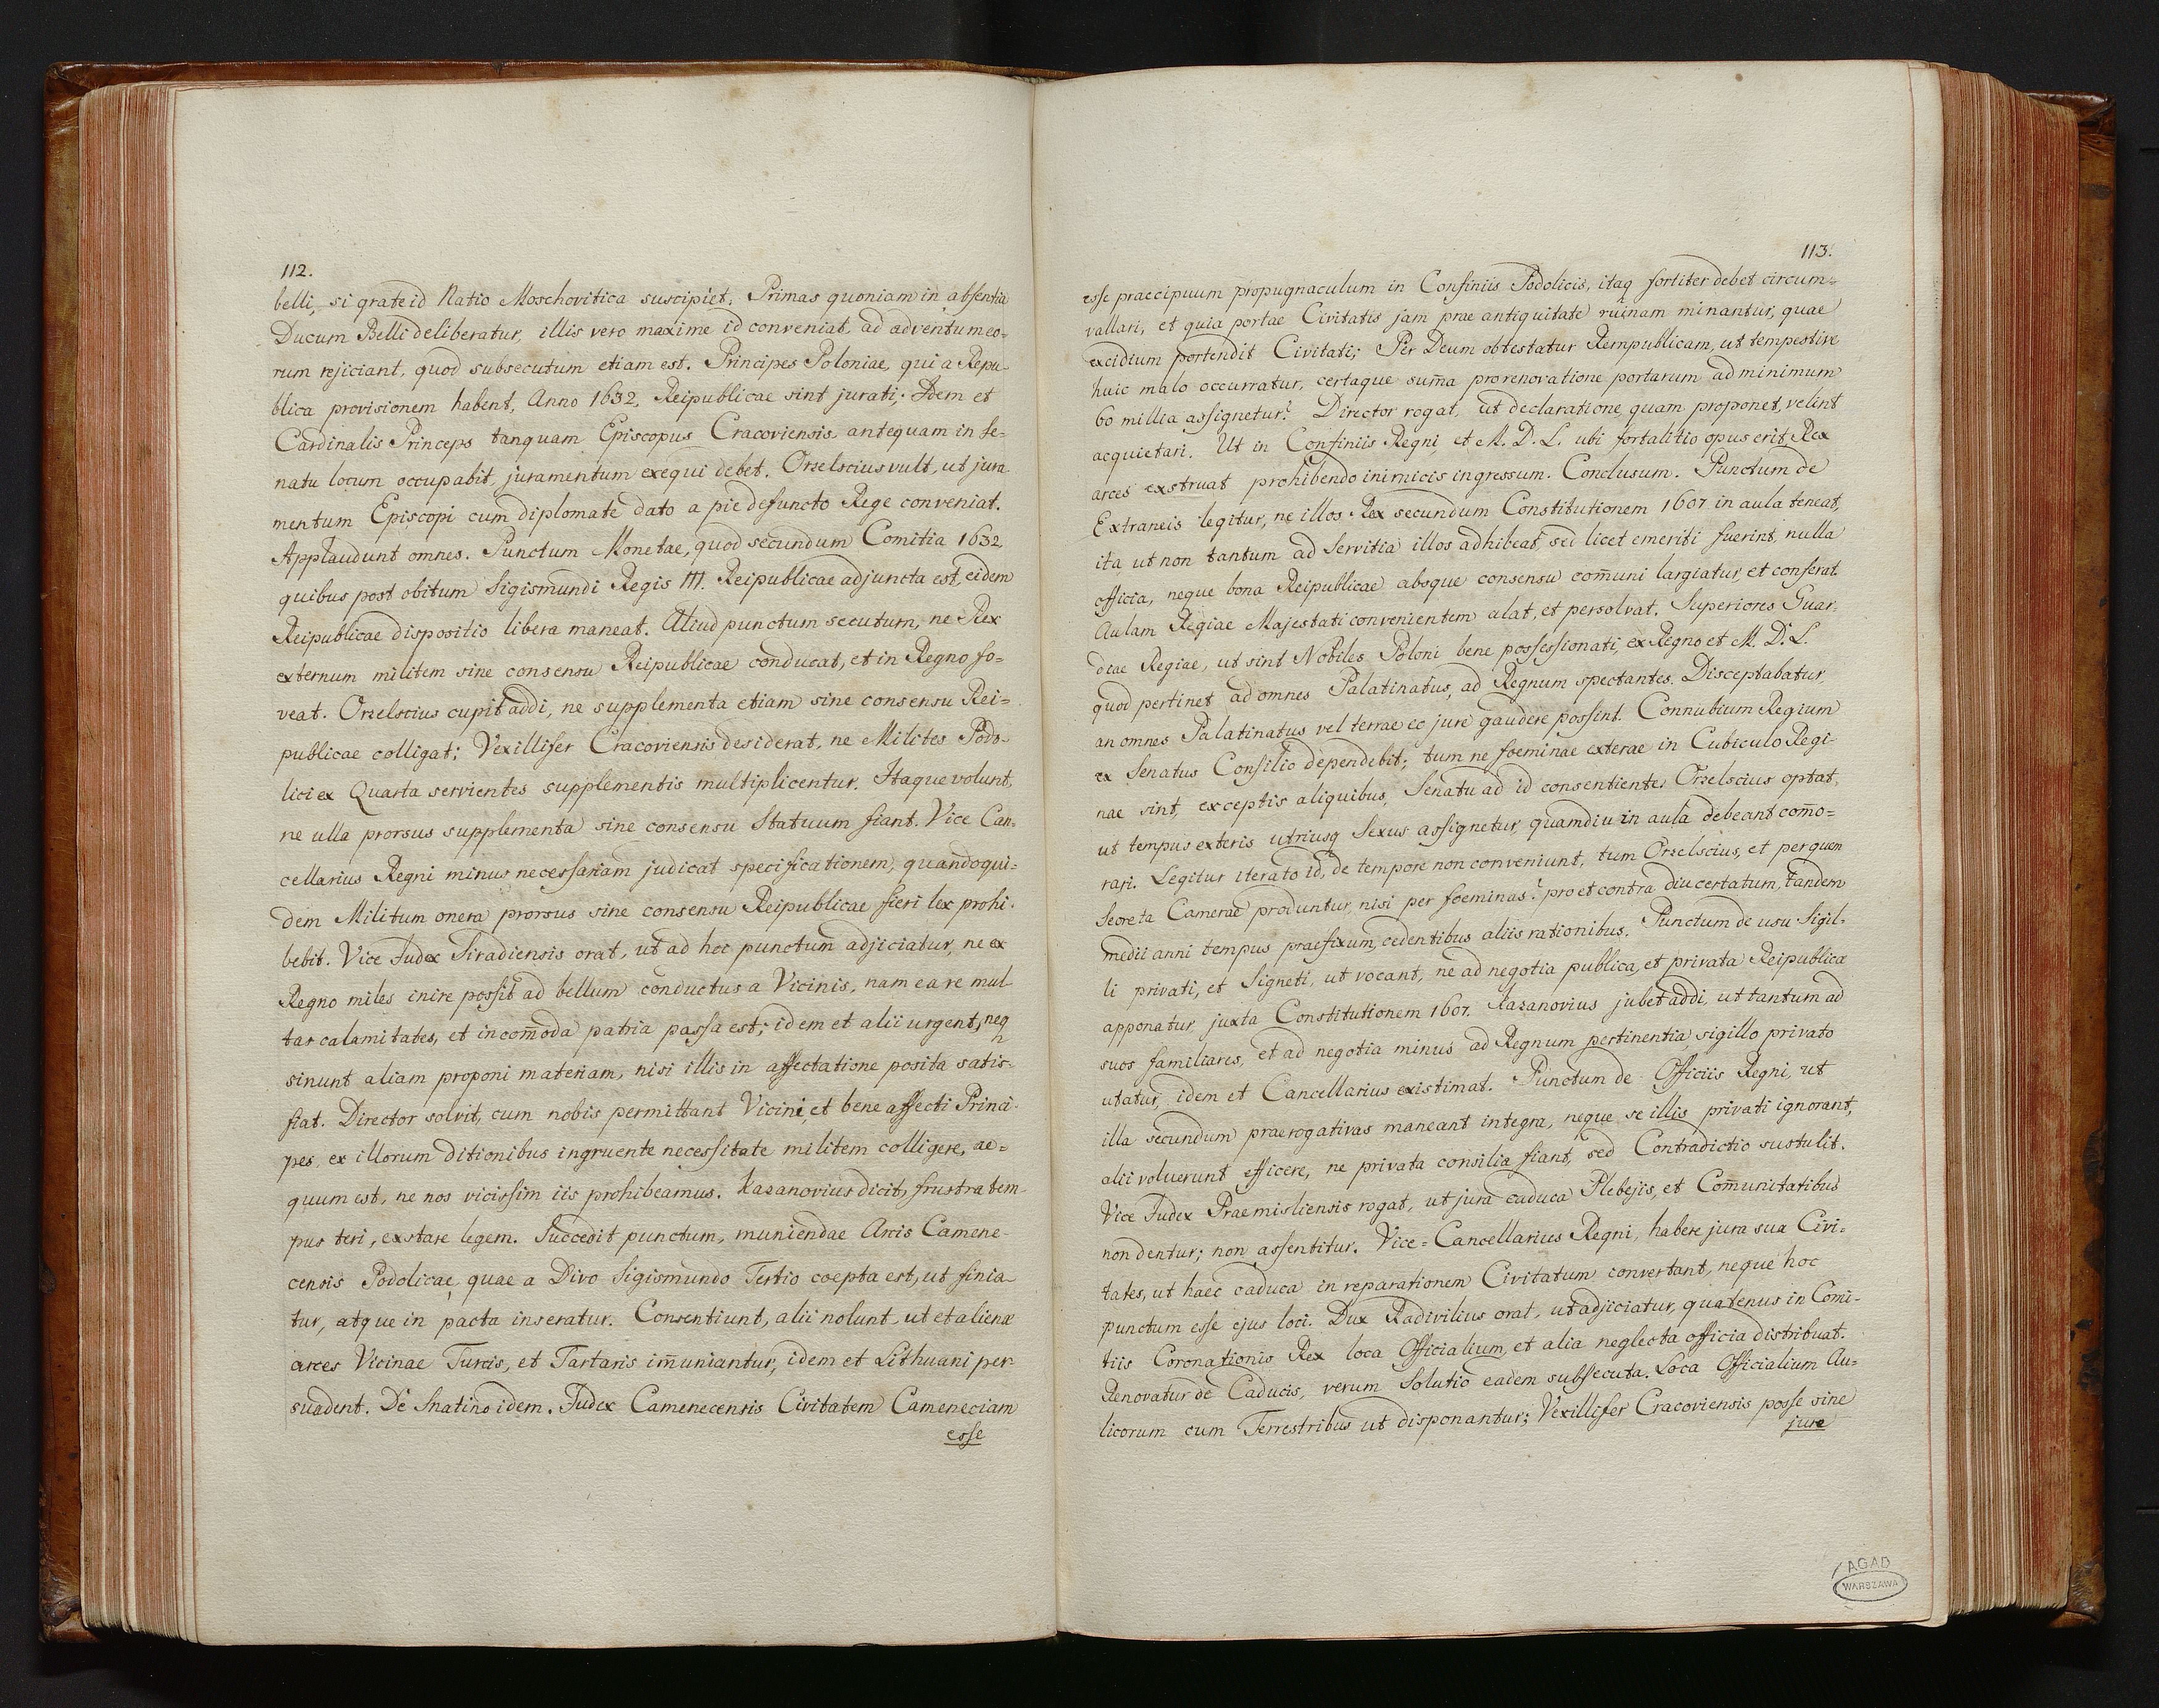 112.
belli, si grate id Natio Moschovitica suscipiet. Primas quoniam in absentia
Ducum Belli deliberatur, illis vero maxime id conveniat, ad adventum eo=
rum rejiciant, quod subsecutum etiam est. Principes Poloniae, qui a Repu-
blica provisionem habent, Anno 1632, Reipublicae sint jurati; Idem et
Cardinalis Princeps tanquam Episcopus Cracoviensis, antequam in Se-
natu locum occupabit, juramentum exequi debet. Orzelscius vult, ut jura
mentum Episcopi cum diplomate dato a pie defuncto Rege conveniat.
Applaudunt omnes. Punctum Monetae, quod secundum Comitia 1632
quibus post obitum Sigismundi Regis III. Reipublicae adjuncta est, eidem
Reipublicae dispositio libera maneat. Aliud punctum secutum, ne Rex
externum militem sine consensu Reipublicae conducat, et in Regno fo=
veat. Orzelscius cupit addi, ne supplementa etiam sine consensu Rei=
publicae colligat; Vexillifer Cracoviensis desiderat, ne Milites Podo-
lici ex Quarta servientes supplementis multiplicentur. Itaque volunt,
ne ulla prorsus supplementa sine consensu Statuum fiant. Vice Can=
cellarius Regni minus necessariam judicat specificationem, quandoqui=
dem Militum onera prorsus sine consensu Reipublicae fieri lex prohi-
bebit. Vice Judex Siradiensis orat, ut ad hoc punctum adjiciatur, ne ex
Regno miles inire possit ad bellum conductus a Vicinis, nam ea re mul
tas calamitates, et incom̄oda patria passa est; idem et alii urgent, neq
sinunt aliam proponi materiam, nisi illis in affectatione posita satis=
fiat. Director solvit, cum nobis permittant Vicini, et bene affecti Princi-
pes, ex illorum ditionibus ingruente necessitate militem colligere, ae=
quum est, ne nos vicissim iis prohibeamus. Kazanovius dicit, frustra tem
pus teri, exstare legem. Succedit punctum, muniendae Arcis Camene-
censis Podolicae, quae a Divo Sigismundo Tertio coepta est, ut finia
tur, atque in pacta inseratur. Consentiunt, alii nolunt, ut et alienae
arces Vicinae Turcis, et Tartaris im̄uniantur, idem et Lithuani per-
suadent. De Snatino idem. Judex Camenecensis Civitatem Cameneciam
esse
113.
esse praecipuum propugnaculum in Confiniis Podolicis, itaq fortiter debet circum=
vallari, et quia portae Civitatis jam prae antiquitate ruinam minantur, quae
excidium portendit Civitati; Per Deum obtestatur Rempublicam, ut tempestive
huic malo occurratur, certaque sum̄a pro renovatione portarum ad minimum
60 millia assignetur? Director rogat, ut declaratione, quam proponet, velint
acquietari. Ut in Confiniis Regni, et M. D. L. ubi fortalitio opus erit, Rex
arces exstruat prohibendo inimicis ingressum. Conclusum. Punctum de
Extraneis legitur, ne illos Rex secundum Constitutionem 1607 in aula teneat,
ita ut non tantum ad Servitia illos adhibeat, sed licet emeriti fuerint, nulla
officia, neque bona Reipublicae absque consensu com̄uni largiatur, et conferat.
Aulam Regiae Majestati convenientem alat, et persolvat. Superiores Guar-
diae Regiae, ut sint Nobiles Poloni bene possessionati, ex Regno et M. D. L.
quod pertinet ad omnes Palatinatus, ad Regnum spectantes. Disceptabatur,
an omnes Palatinatus vel terrae eo jure gaudere possint. Connubium Regium
ex Senatus Consilio dependebit; tum ne foeminae exterae in Cubiculo Regi-
nae sint, exceptis aliquibus, Senatu ad id consentiente. Orzelscius optat,
ut tempus exteris utriusq Sexus assignetur, quamdiu in aula debeant com̄o=
rari. Legitur iterato id, de tempore non conveniunt, tum Orzelscius, et per quem
Secreta Camerae produntur, nisi per foeminas? pro et contra diu certatum, tandem
medii anni tempus praefixum, cedentibus aliis rationibus. Punctum de usu Sigil-
li privati, et Signeti, ut vocant, ne ad negotia publica, et privata Reipublicae
apponatur, juxta Constitutionem 1607. Kazanovius jubet addi, ut tantum ad
suos familiares, et ad negotia minus ad Regnum pertinentia, sigillo privato
utatur, idem et Cancellarius existimat. Punctum de Officiis Regni, ut
illa secundum praerogativas maneant integra, neque se illis privati ignorant,
alii voluerunt efficere, ne privata consilia fiant, sed Contradictio sustulit.
Vice Judex Praemisliensis rogat, ut jura caduca Plebejis, et Com̄unitatibus
non dentur; non assentitur. Vice=Cancellarius Regni, habere jura sua Civi=
tates, ut haec caduca in reparationem Civitatum convertant, neque hoc
punctum esse ejus loci. Dux Radivilius orat, ut adjiciatur, quatenus in Comi-
tiis Coronationis Rex loca Officialium, et alia neglecta officia distribuat.
Renovatur de Caducis, verum Solutio eadem subsecuta. Loca Officialium Au=
licorum cum Terrestribus ut disponantur; Vexillifer Cracoviensis posse sine
jure
AGAD
WARSZAWA